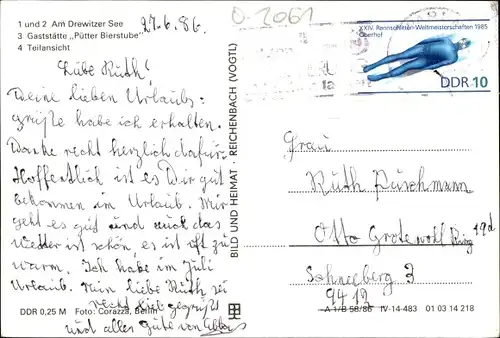 1 und 2 Am Drewitzer See
3 Gaststätte „Pütter Bierstube"
4 Teilansicht
27.6.86.
0-2061
XXIV. Rennschlitten-Weltmeisterschaften 1985
Oberhof
DDR 10
Liebe Ruth!
Deine lieben Urlaubs=
grüße habe ich erhalten.
Danke recht herzlich dafür.
Hoffentlich ist es Dir gut
bekommen im Urlaub. Mir
geht es gut und auch das
Wetter ist schön, es ist oft zu
warm. Ich habe im Juli
Urlaub. Nun liebe Ruth sei
recht viel gegrüßt
und alles Gute von
BILD UND HEIMAT · REICHENBACH (VOGTL)
Frau
Ruth Puschmann
Otto Grotewohl Ring 19d
Schneeberg 3
9412
DDR 0,25 M Foto: Corazza, Berlin
A 1/B 58/86 IV-14-483 01 03 14 218